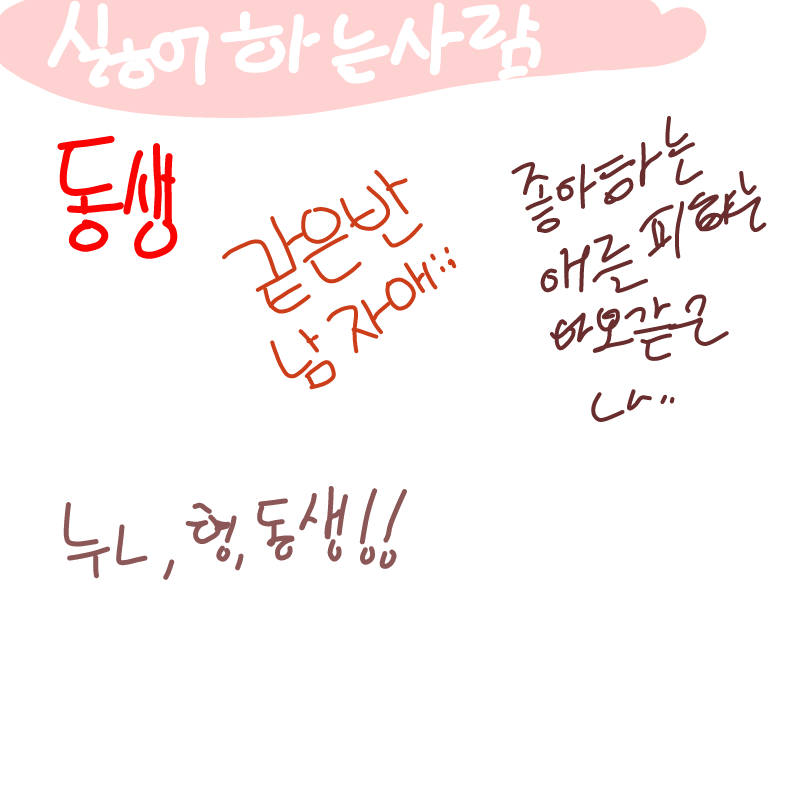 싫어하는사람
동생
같은반
남자애;;
좋아하는
애를 피하는
바보같은
나..
누나, 형, 동생!!